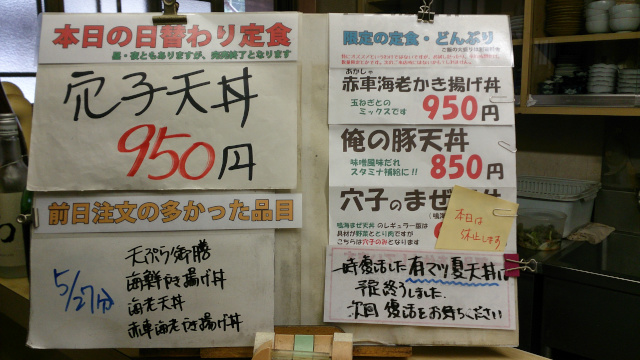 本日の日替わり定食
昼・夜ともありますが、完売終了となります
穴子天丼
950円
前日注文の多かった品目
5/27分
天ぷら御膳
海鮮かき揚げ丼
海老天丼
赤車海老かき揚げ丼
限定の定食・どんぶり
あかしゃ
赤車海老かき揚げ丼
玉ねぎとの
ミックスです
950円
俺の豚天丼
味噌風味だれ
スタミナ補給に!!
850円
穴子のまぜ
鳴海まぜ天丼のレギュラー版は
具材が野菜ととり肉ですが
こちらは穴子のみとなります
本日は
休止します
一時復活した有マツ夏天丼は
予定終うしました
次回復活をお待ちください